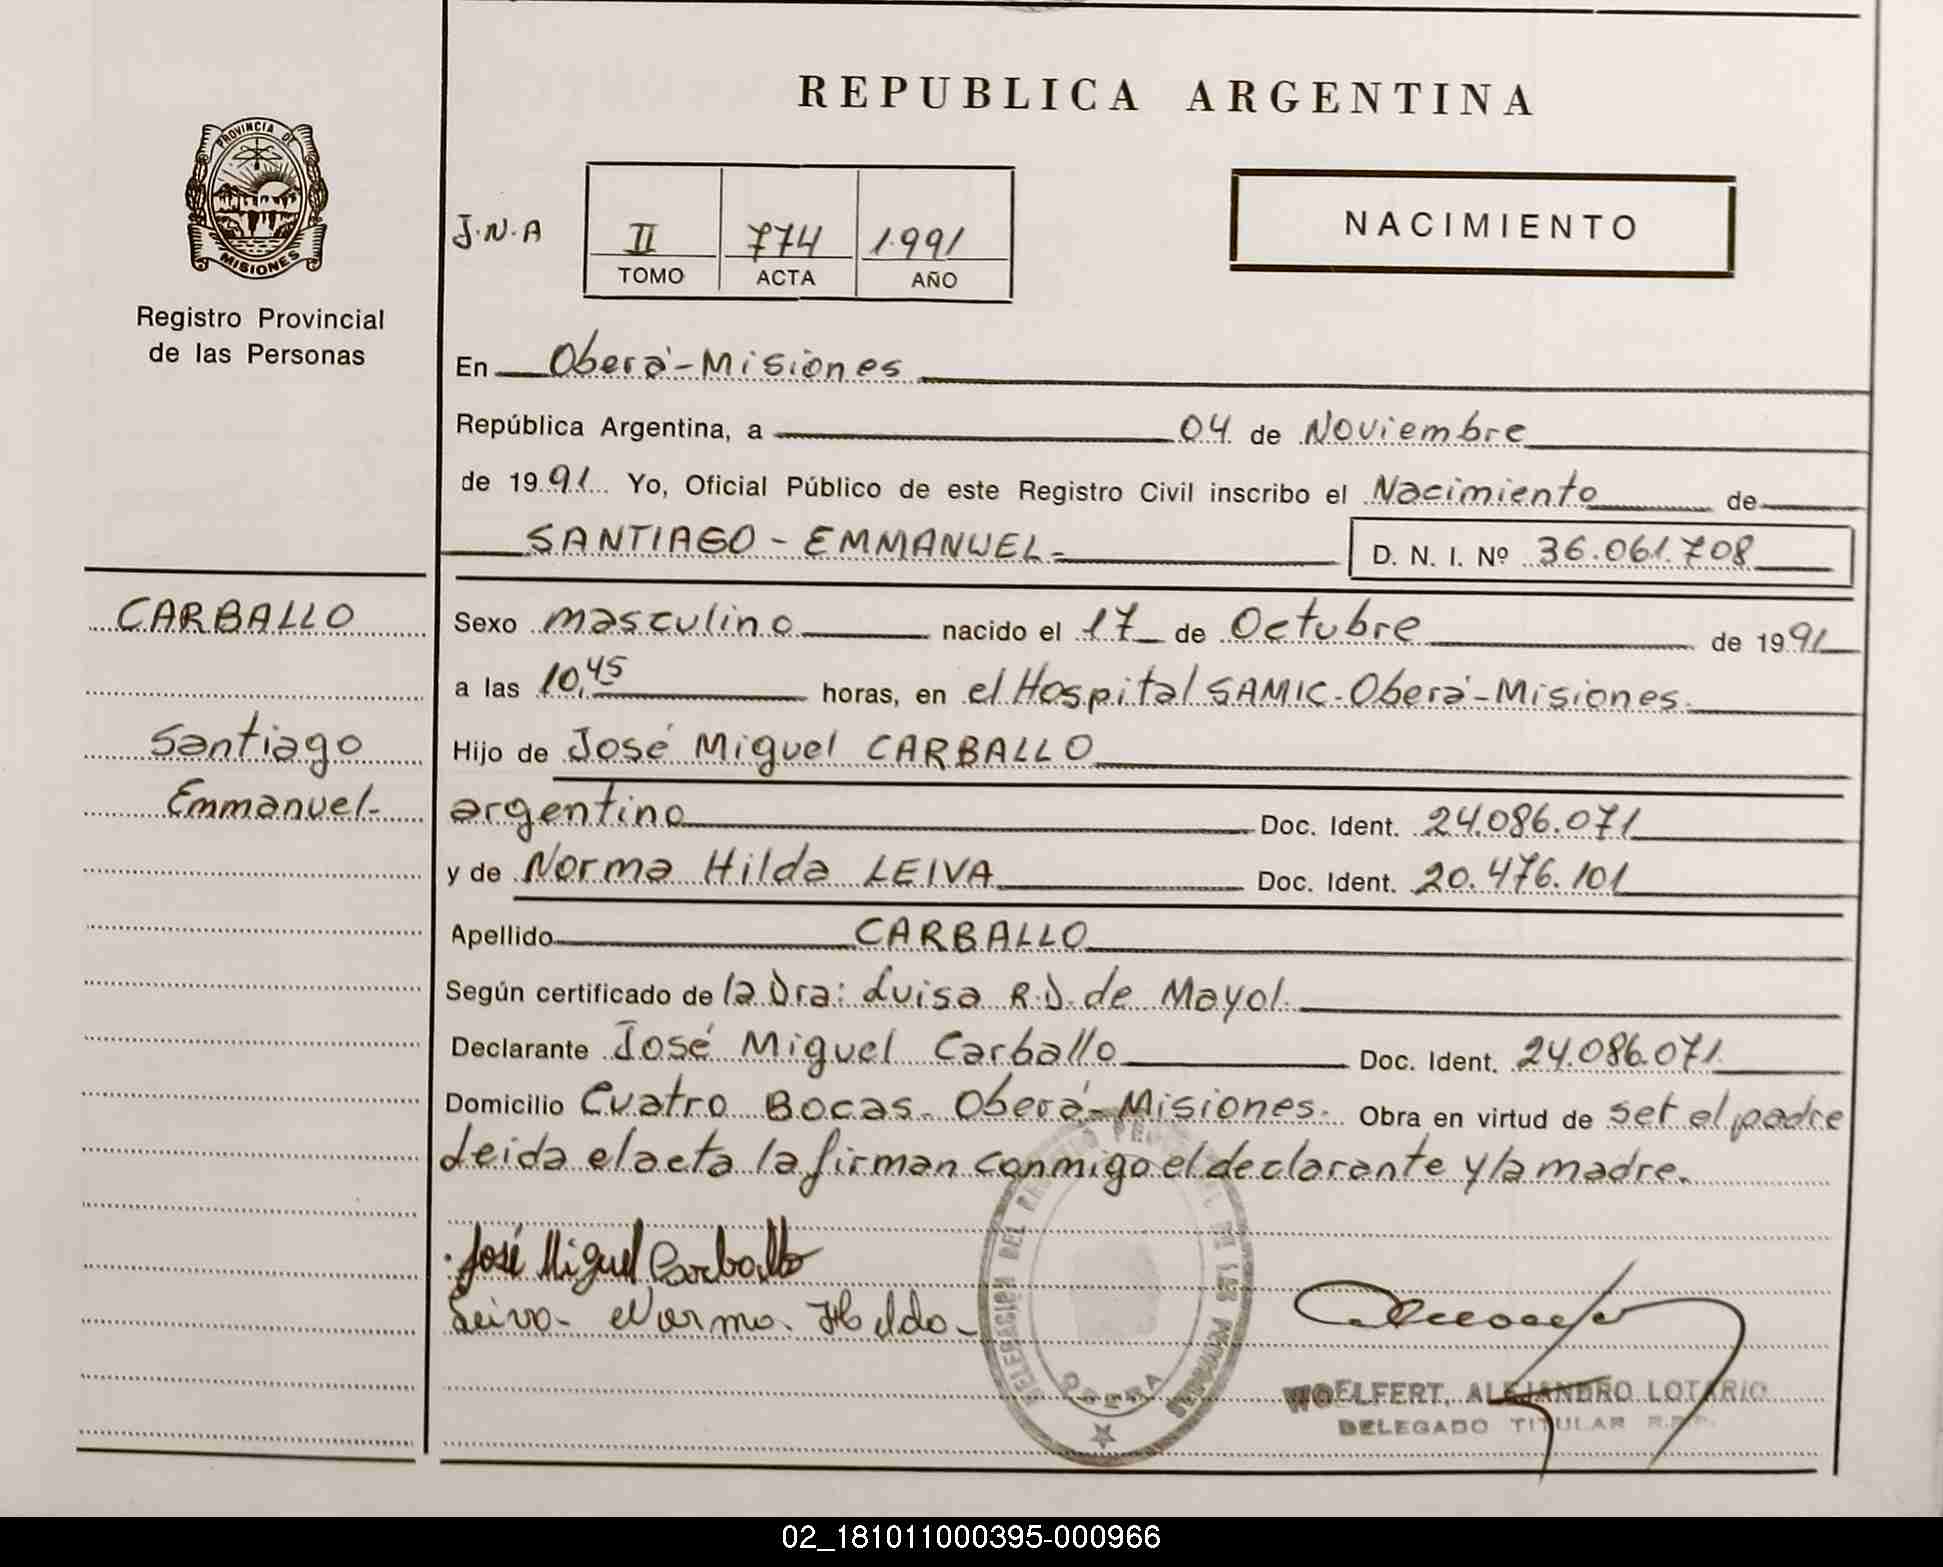 REPUBLICA ARGENTINA
PROVINCIA DE
MISIONES
Registro Provincial
de las Personas
J.N.A
II 774 1991
TOMO ACTA AÑO
NACIMIENTO
En Oberá-Misiones
República Argentina, a 04 de Noviembre
de 1991. Yo, Oficial Público de este Registro Civil inscribo el Nacimiento de
SANTIAGO-EMMANUEL- D. N. I. Nº 36.061.708
CARBALLO
Santiago
Emmanuel-
Sexo masculino nacido el 17 de Octubre de 1991
a las 10,45 horas, en el Hospital SAMIC-Oberá-Misiones.
Hijo de José Miguel CARBALLO
argentino Doc. Ident. 24.086.071
y de Norma Hilda LEIVA Doc. Ident. 20.476.101
Apellido CARBALLO
Según certificado de la Dra: Luisa R.D. de Mayol.
Declarante José Miguel Carballo Doc. Ident. 24.086.071
Domicilio Cuatro Bocas. Oberá-Misiones. Obra en virtud de ser el padre
Leida el acta la firman conmigo el declarante y la madre.
José Miguel Carballo
Leiva- Norma. Hilda-
DELEGACION DEL DE LAS PERSONAS
OBERA
WOELFERT, ALEJANDRO LOTARIO
DELEGADO TITULAR R.P.P.
02_181011000395-000966